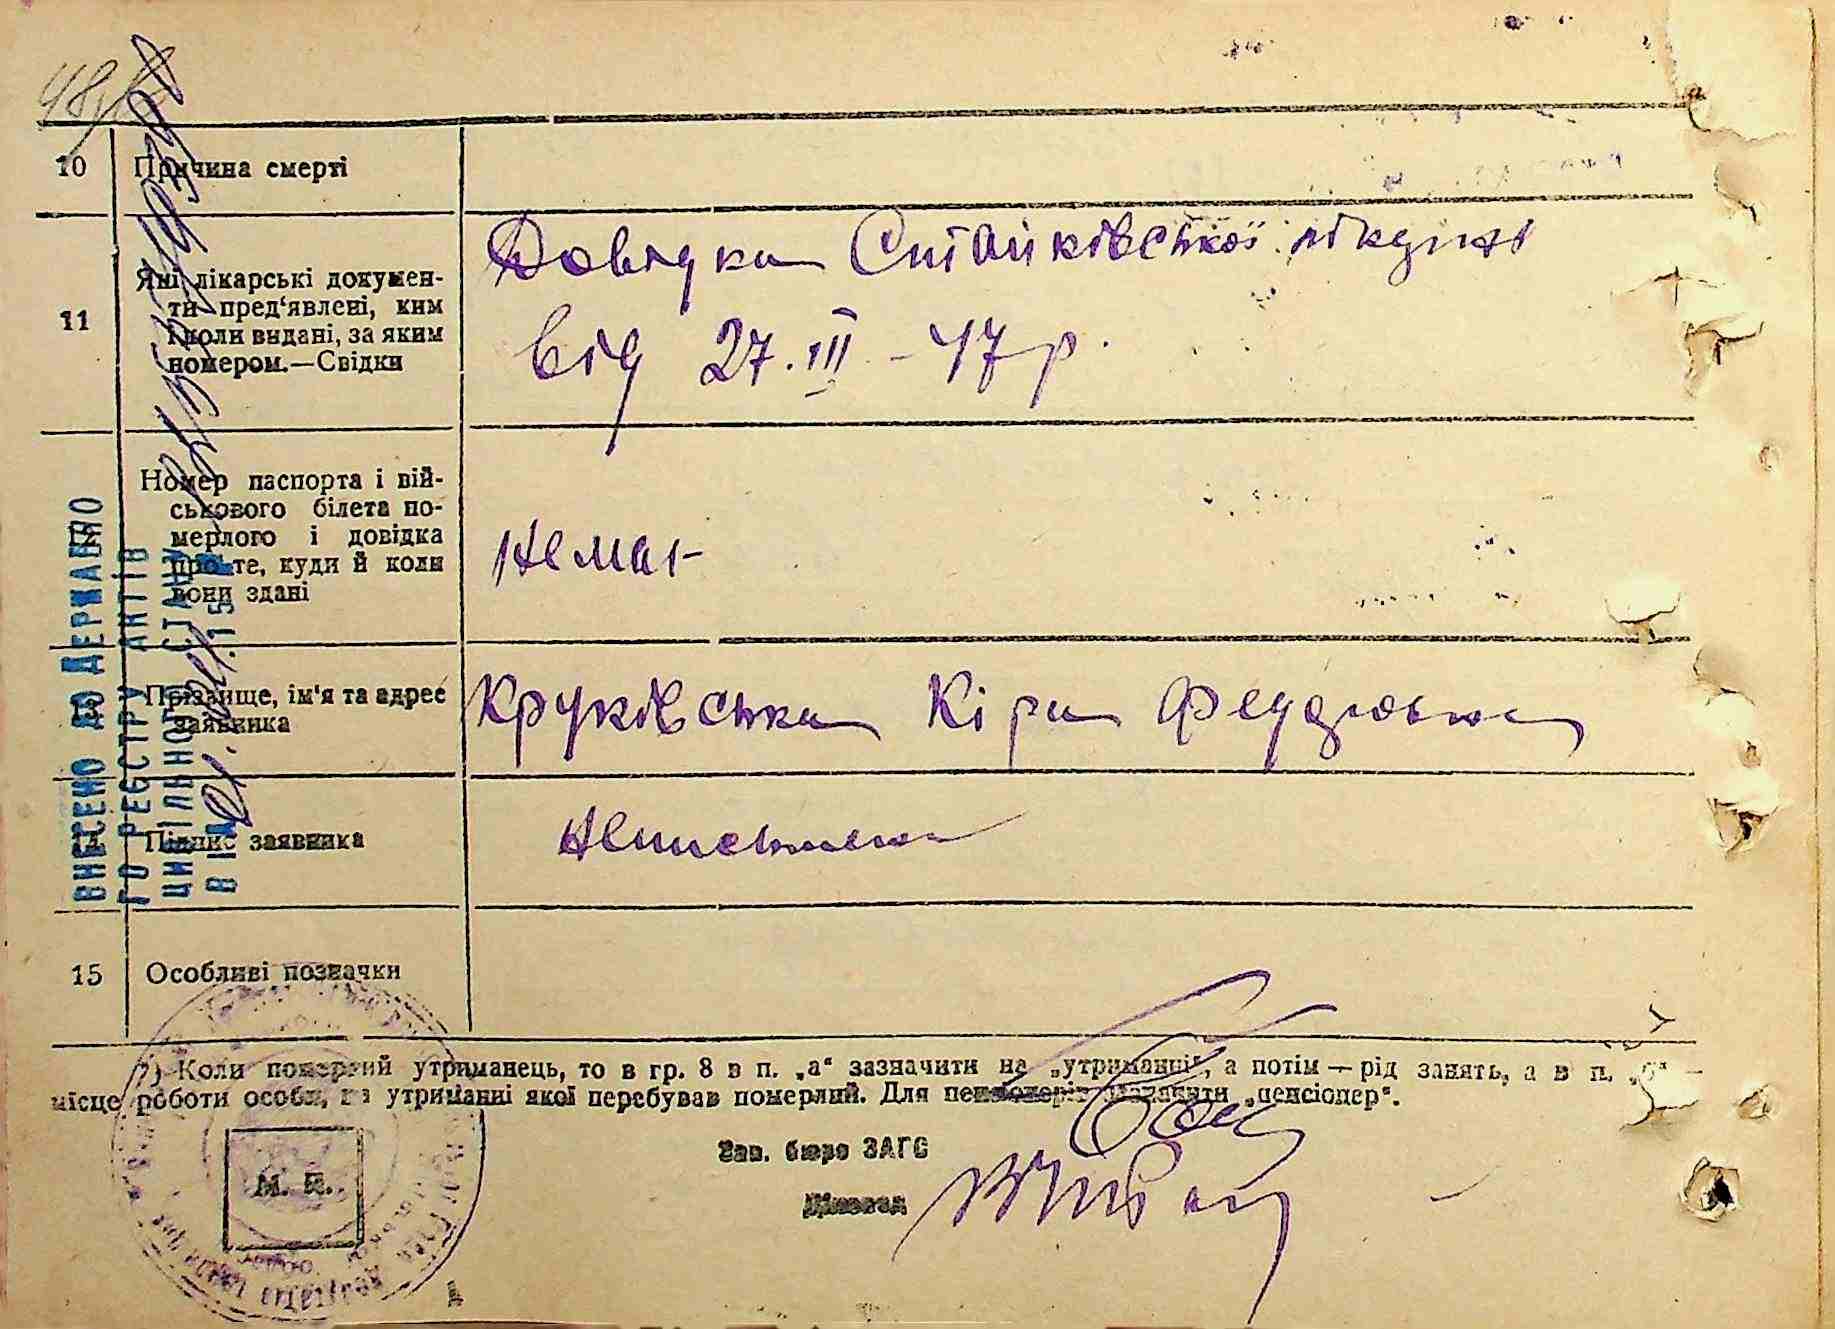 10 Причина смерті
11 Які лікарські докумен-
ти пред‘явлені, ким
і коли видані, за яким
номером.—Свідки
Довідка Стайківської лікарні
від 27.III - 47 р.
Номер паспорта і вій-
ськового білета по-
мерлого і довідка
про те, куди й коли
вони здані
немає
Прізвище, ім‘я та адрес
заявника
Круківська Кіра Федорівна
Підпис заявника
неписьменна
15 Особливі позначки
7) Коли померлий утриманець, то в гр. 8 в п. „а“ зазначити на „утриманні“, а потім — рід занять, а в п. „б“ —
місце роботи особи, на утриманні якої перебував померлий. Для пенсіонерів зазначити „пенсіонер“.
Зав. бюро ЗАГС
Діловод
М. П.
ВНЕСЕНО ДО ДЕРЖАВНО
ГО РЕЄСТРУ АКТІВ
ЦИВІЛЬНОГО СТАНУ